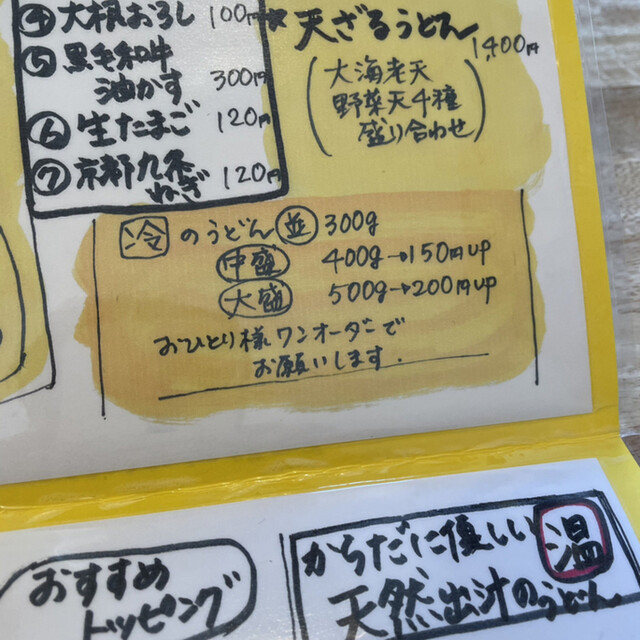 ④大根おろし 100円
⑤黒毛和牛
油かす 300円
⑥生たまご 120円
⑦京都九条
ねぎ 120円
天ざるうどん
1,400円
(大海老天
野菜天4種
盛り合わせ)
冷のうどん 並 300g
中盛 400g→150円up
大盛 500g→200円up
おひとり様ワンオーダーで
お願いします.
おすすめ
トッピング
からだに優しい 温
天然出汁のうどん